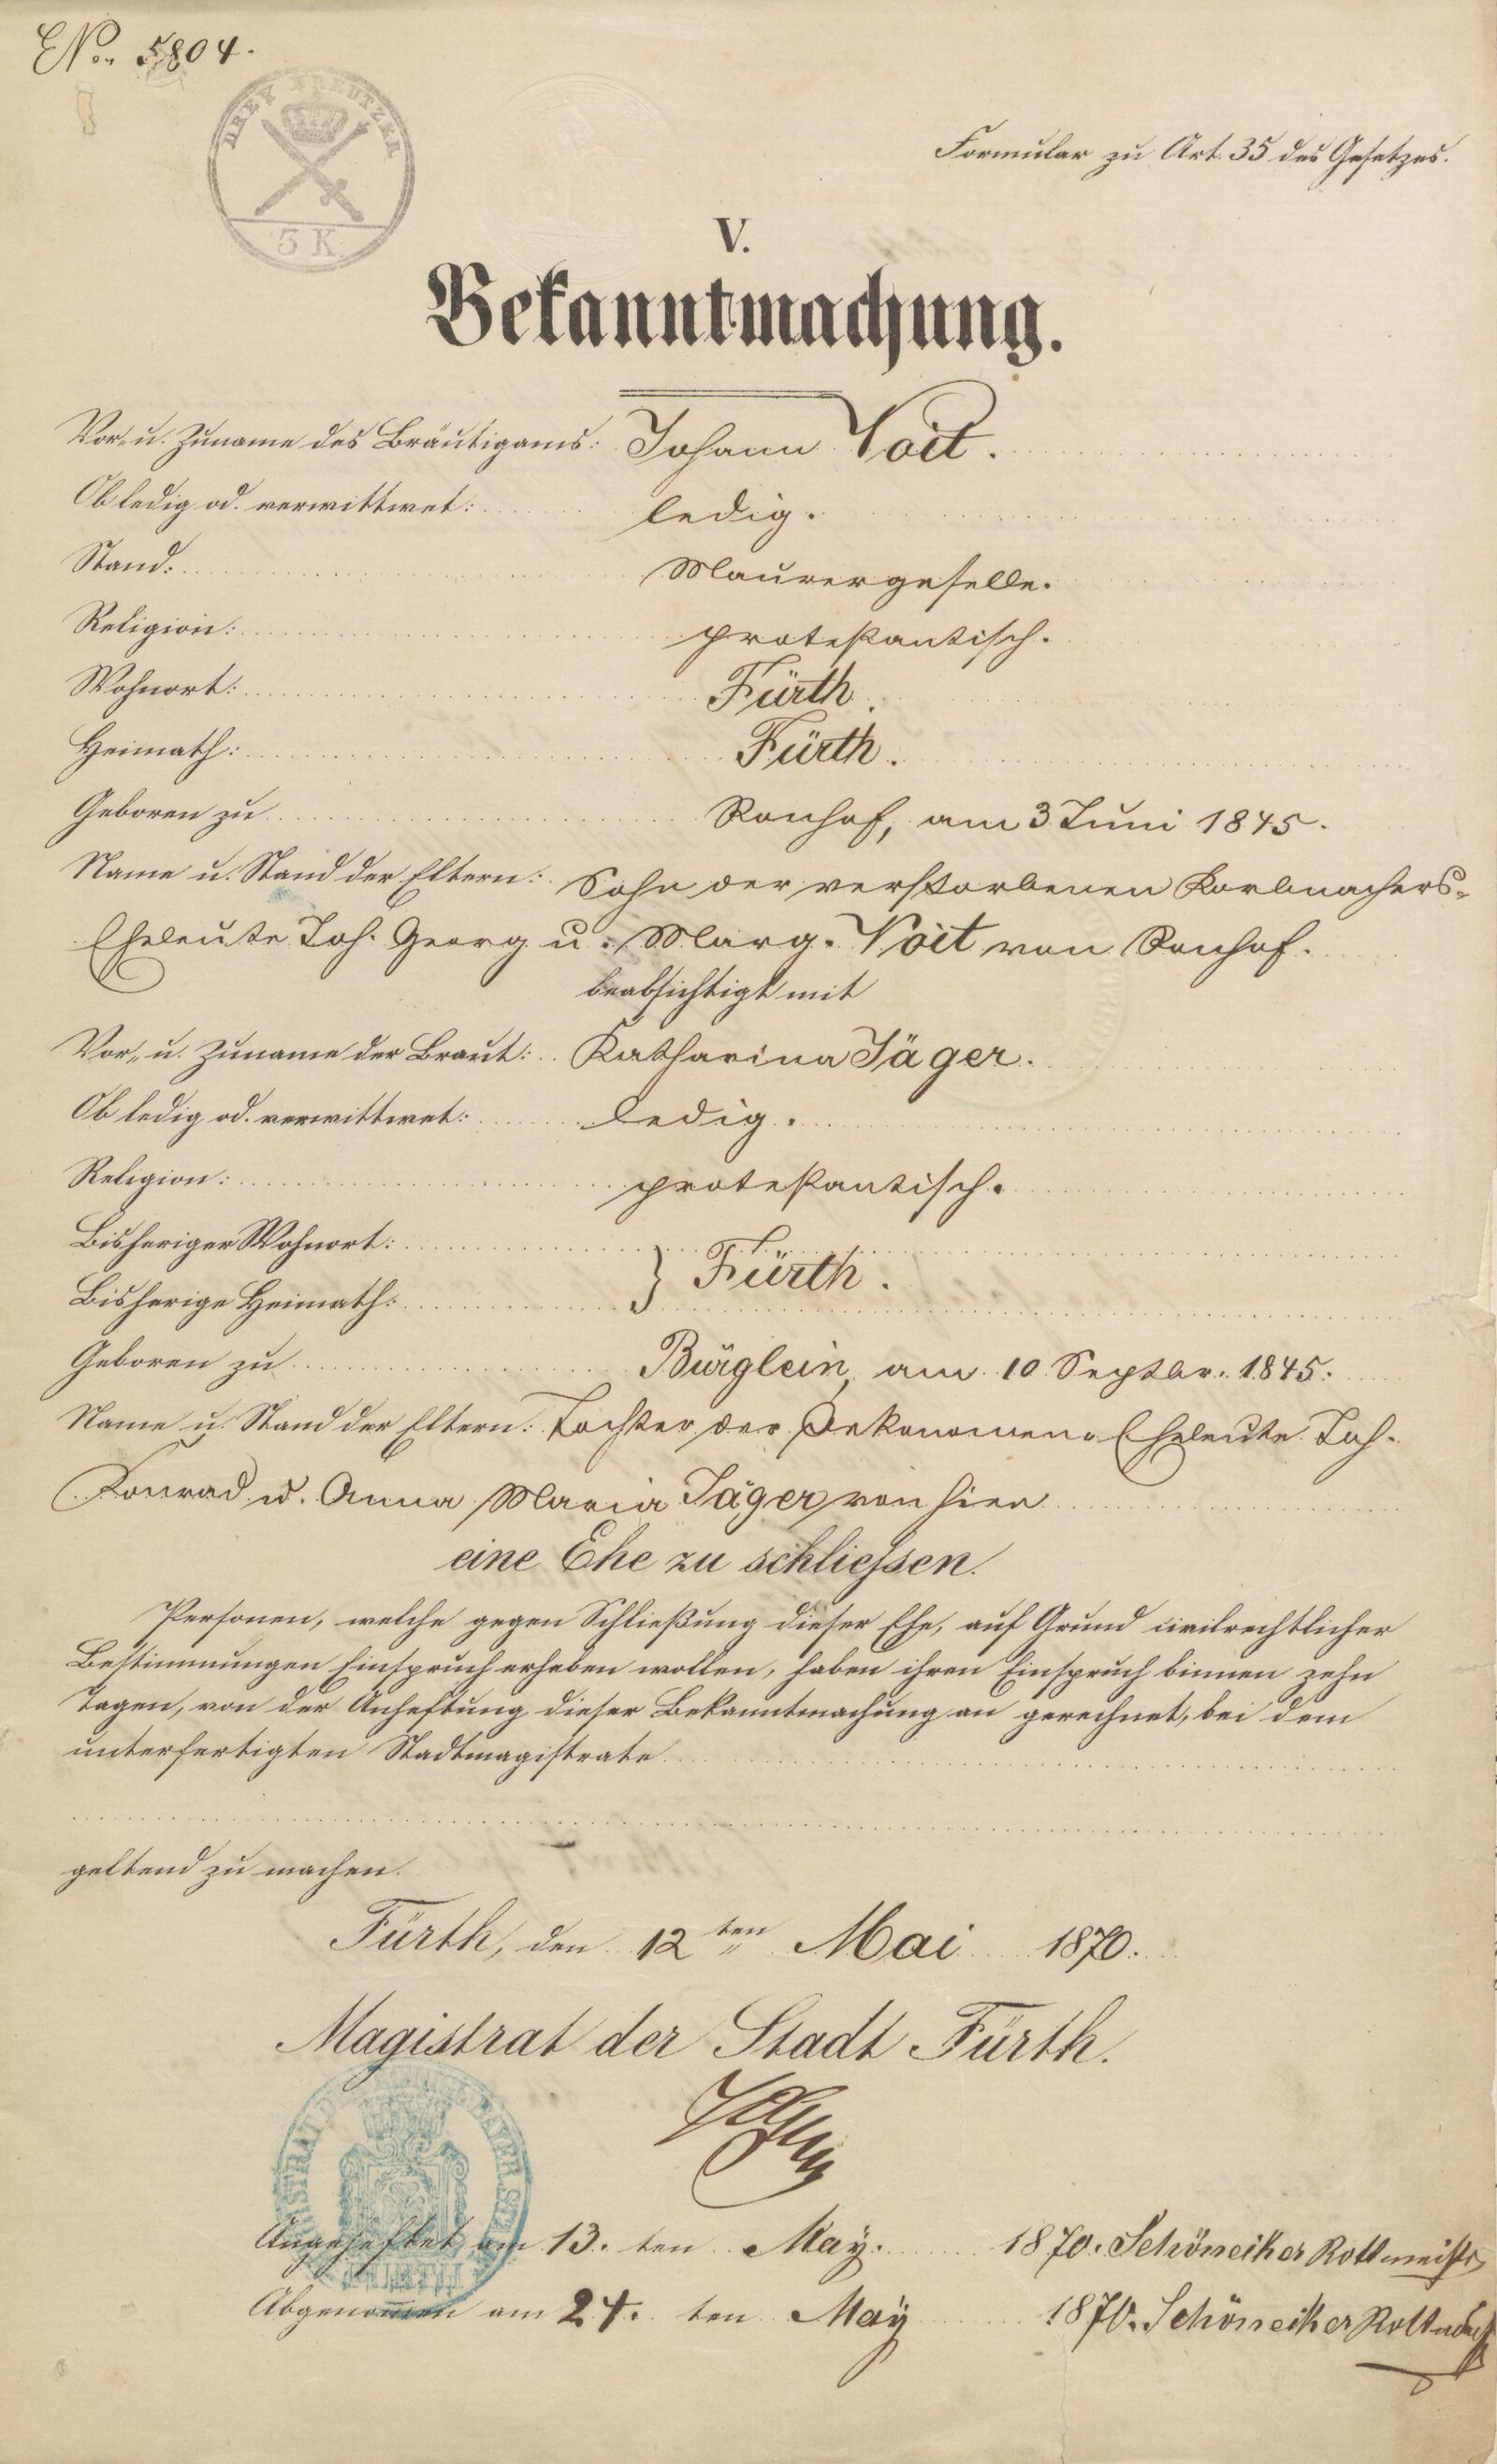 ENo. 5804.
DREY KREUTZER
3 K
Formular zu Art. 35 des Gesetzes.
V.
Bekanntmachung.
Vor- u. Zuname des Bräutigams: Johann Voit.
Ob ledig od. verwittwet: ledig.
Stand: Maurergeselle.
Religion: protestantisch.
Wohnort: Fürth.
Heimath: Fürth.
Geboren zu Ronhof, am 3 Juni 1845.
Name u. Stand der Eltern: Sohn der verstorbenen Korbmachers-
Eheleute Joh. Georg u. Marg. Voit von Ronhof.
beabsichtigt mit
Vor- u. Zuname der Braut: Katharina Jäger.
Ob ledig od. verwittwet: ledig.
Religion: protestantisch.
Bisheriger Wohnort:
} Fürth.
Bisherige Heimath:
Geboren zu Bürglein, am 10 Septbr. 1845.
Name u. Stand der Eltern: Tochter der Oekonomen-Eheleute Joh.
Konrad u. Anna Maria Jäger von hier
eine Ehe zu schliessen.
Personen, welche gegen Schließung dieser Ehe, auf Grund civilrechtlicher
Bestimmungen Einspruch erheben wollen, haben ihren Einspruch binnen zehn
Tagen, von der Anheftung dieser Bekanntmachung an gerechnet, bei dem
unterfertigten Stadtmagistrate
geltend zu machen.
Fürth, den 12ten Mai 1870.
Magistrat der Stadt Fürth.
Angeheftet am 13. ten May. 1870. Schöneiker Rottmeister
Abgenommen am 24. ten May 1870. Schöneiker Rottmeister